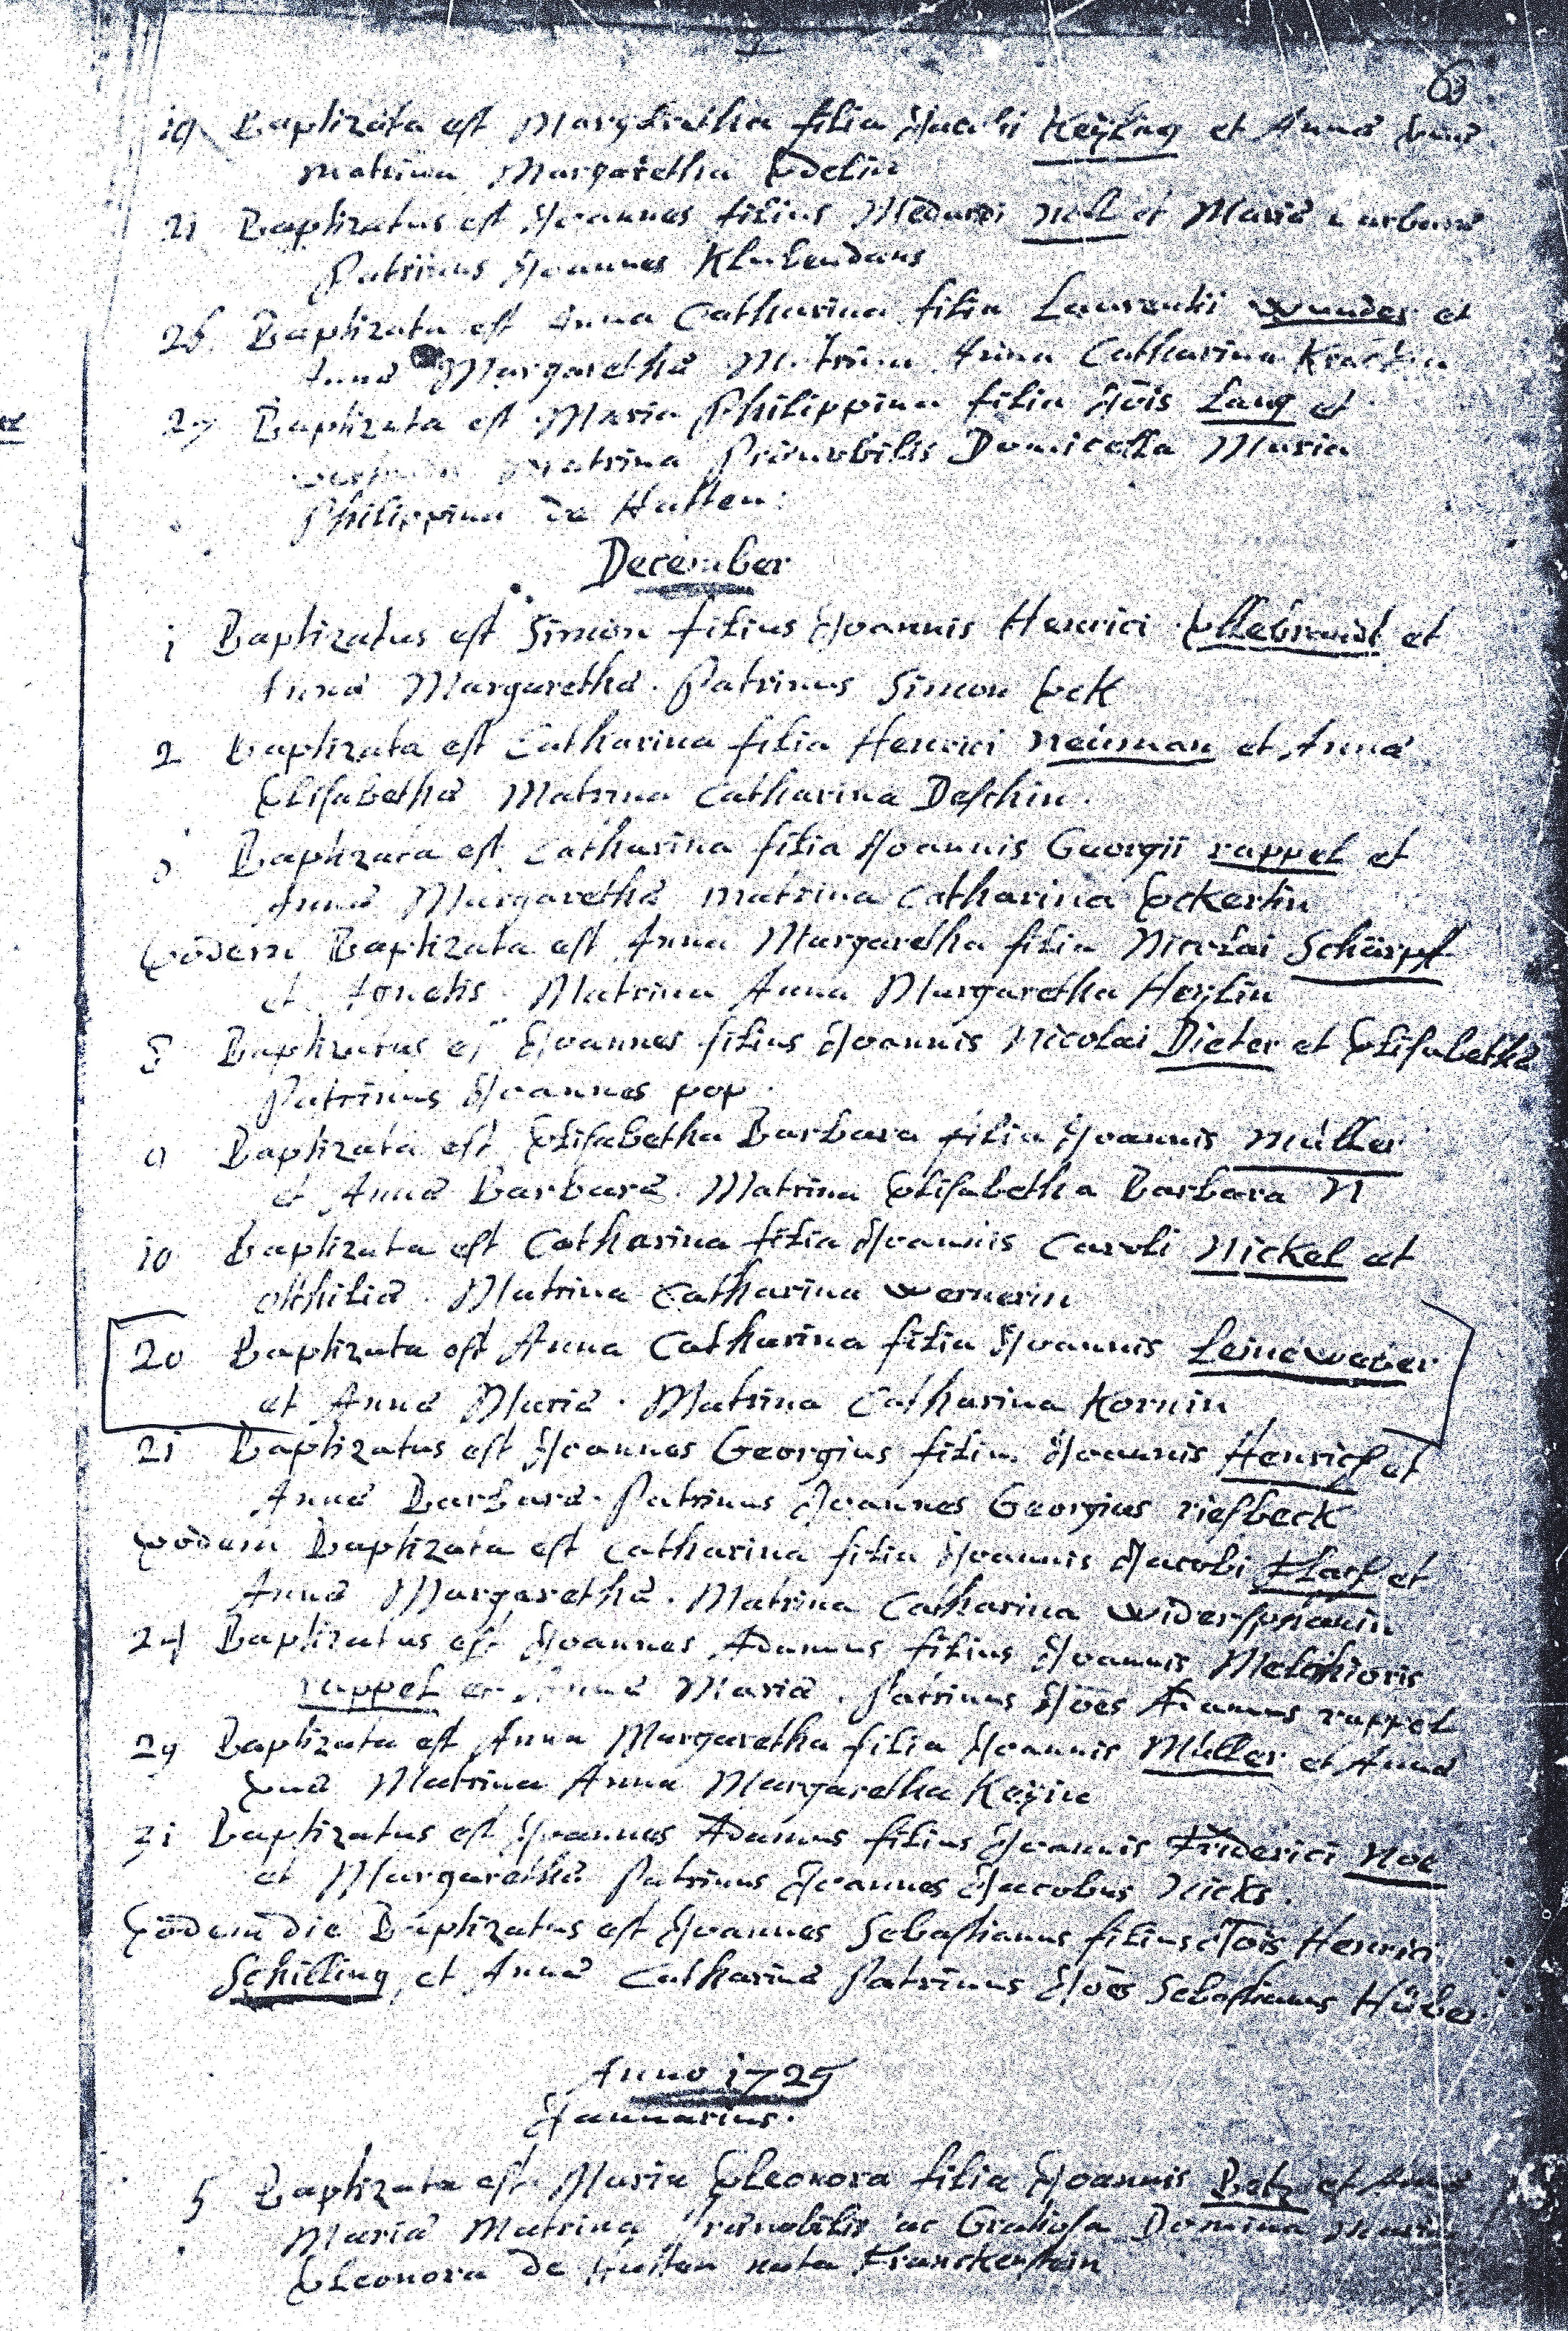 63
19 Baptizata est Margaretha filia Jacobi Keÿling et Annæ Evæ
matrina Margaretha Edelin
21 Baptizatus est Joannes filius Medardi Nell et Mariæ Barbaræ
Patrinus Joannes Klubendans
26 Baptizata est Anna Catharina filia Laurentii Wunder et
Annæ Margarethæ Matrina Anna Catharina
27 Baptizata est Maria Philippina filia Jois Lang et
Matrina Prænobilis Domicella Maria
Philippina de Hutten:
December
1 Baptizatus est Simon filius Joannis Henrici Ellebrandt et
Annæ Margarethæ. Patrinus Simon Eck
2 Baptizata est Catharina filia Henrici Neüman et Annæ
Elisabethæ Matrina Catharina Deschin.
3 Baptizata est Catharina filia Joannis Georgii rappel et
Annæ Margarethæ matrina Catharina Eckertin
Eodem Baptizata est Anna Margaretha filia Nicolai Schärpf
et Agnetis. Matrina Anna Margaretha Heÿlin
8 Baptizatus est Joannes filius Joannis Nicolai Dieter et Elisabethæ
Patrinus Joannes pop.
9 Baptizata est Elisabetha Barbara filia Joannis Müller
et Annæ Barbaræ. Matrina Elisabetha Barbara N
10 Baptizata est Catharina filia Joannis Caroli Nickel et
otthiliæ. Matrina Catharina Wernerin
20 Baptizata est Anna Catharina filia Joannis Leineweber
et Annæ Mariæ. Matrina Catharina Kornin
21 Baptizatus est Joannes Georgius filius Joannis Henrich et
Annæ Barbaræ. Patrinus Joannes Georgius riesbeck
Eodem Baptizata est Catharina filia Joannis Jacobi Flach et
Annæ Margarethæ. Matrina Catharina
24 Baptizatus est Joannes Adamus filius Joannis Melchioris
rappel et Annæ Mariæ. Patrinus Joes Adamus rappel
29 Baptizata est Anna Margaretha filia Joannis Müller et Annæ
Evæ Matrina Anna Margaretha Keÿin
31 Baptizatus est Joannes Adamus filius Joannis Friderici Noe
et Margarethæ Patrinus Joannes Jacobus Nicks.
Eodem die Baptizatus est Joannes Sebastianus filius Jois Henrici
Schilling et Annæ Catharinæ Patrinus Joes Sebastianus Hüber
Anno 1725
Januarius.
5 Baptizata est Maria Eleonora filia Joannis Betz et Annæ
Mariæ Matrina Prænobilis ac Gratiosa Domina Maria
Eleonora de Hutten nata Franckenstein